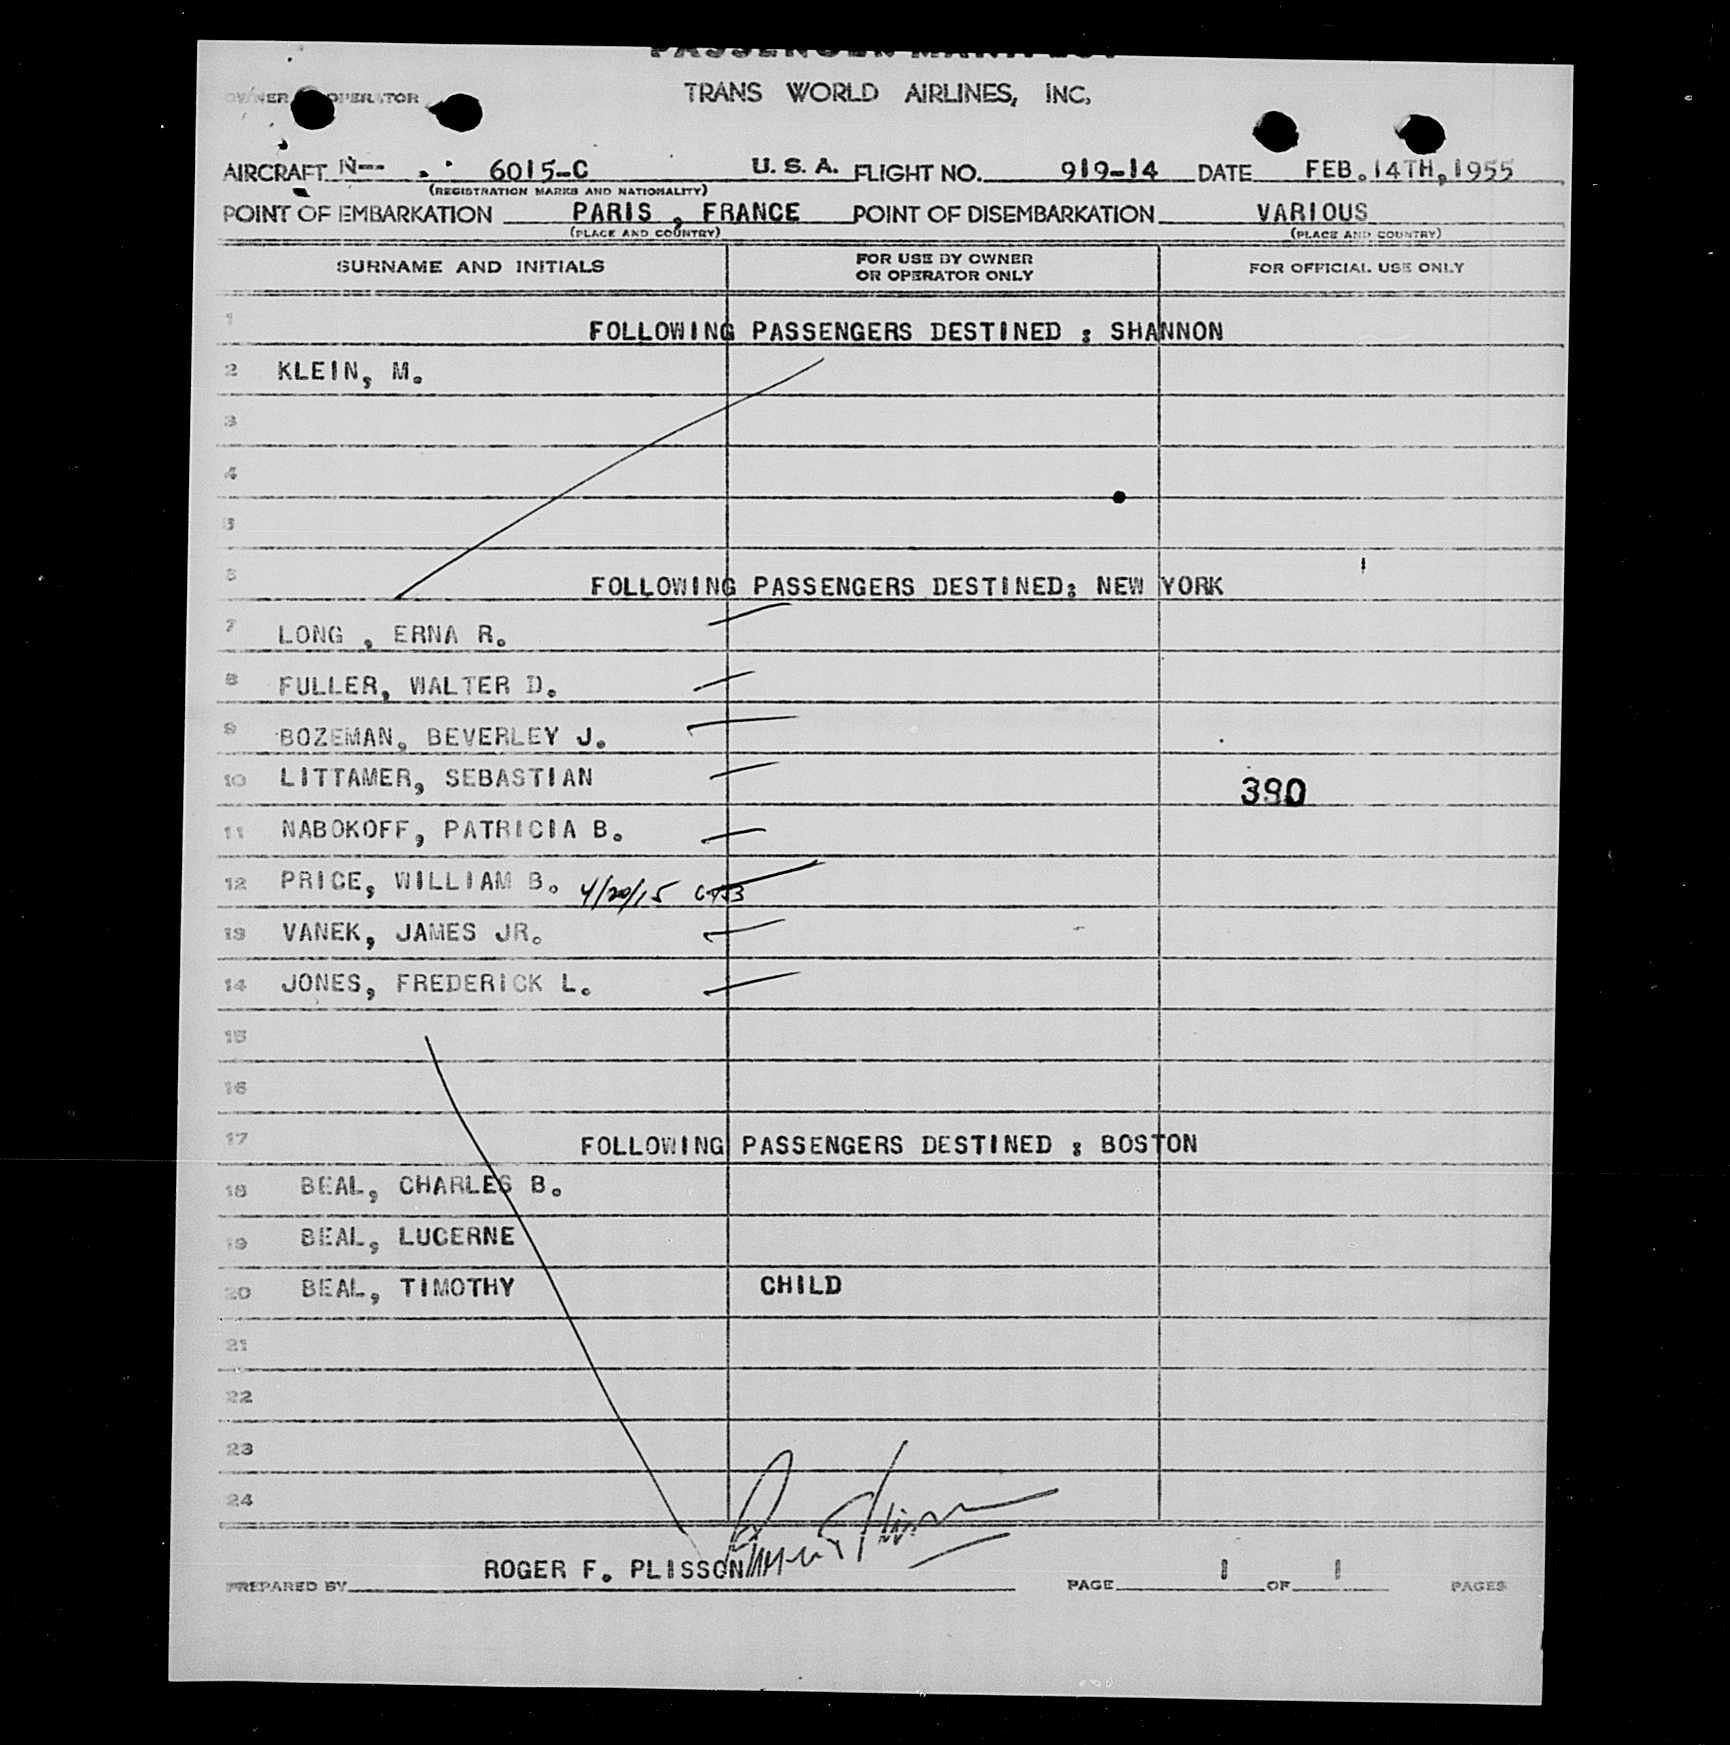 PASSENGER MANIFEST
OWNER OR OPERATOR TRANS WORLD AIRLINES, INC.
AIRCRAFT N-- 6015-C U. S. A. FLIGHT NO. 919-14 DATE FEB. 14TH, 1955
(REGISTRATION MARKS AND NATIONALITY)
POINT OF EMBARKATION PARIS , FRANCE POINT OF DISEMBARKATION VARIOUS
(PLACE AND COUNTRY) (PLACE AND COUNTRY)
SURNAME AND INITIALS FOR USE BY OWNER OR OPERATOR ONLY FOR OFFICIAL USE ONLY
1 FOLLOWING PASSENGERS DESTINED : SHANNON
2 KLEIN, M.
3
4
5
6 FOLLOWING PASSENGERS DESTINED: NEW YORK
7 LONG , ERNA R.
8 FULLER, WALTER D.
9 BOZEMAN, BEVERLEY J.
10 LITTAMER, SEBASTIAN 390
11 NABOKOFF, PATRICIA B.
12 PRICE, WILLIAM B. 4/20/15
13 VANEK, JAMES JR.
14 JONES, FREDERICK L.
15
16
17 FOLLOWING PASSENGERS DESTINED : BOSTON
18 BEAL, CHARLES B.
19 BEAL, LUCERNE
20 BEAL, TIMOTHY CHILD
21
22
23
24
PREPARED BY ROGER F. PLISSON PAGE 1 OF 1 PAGES